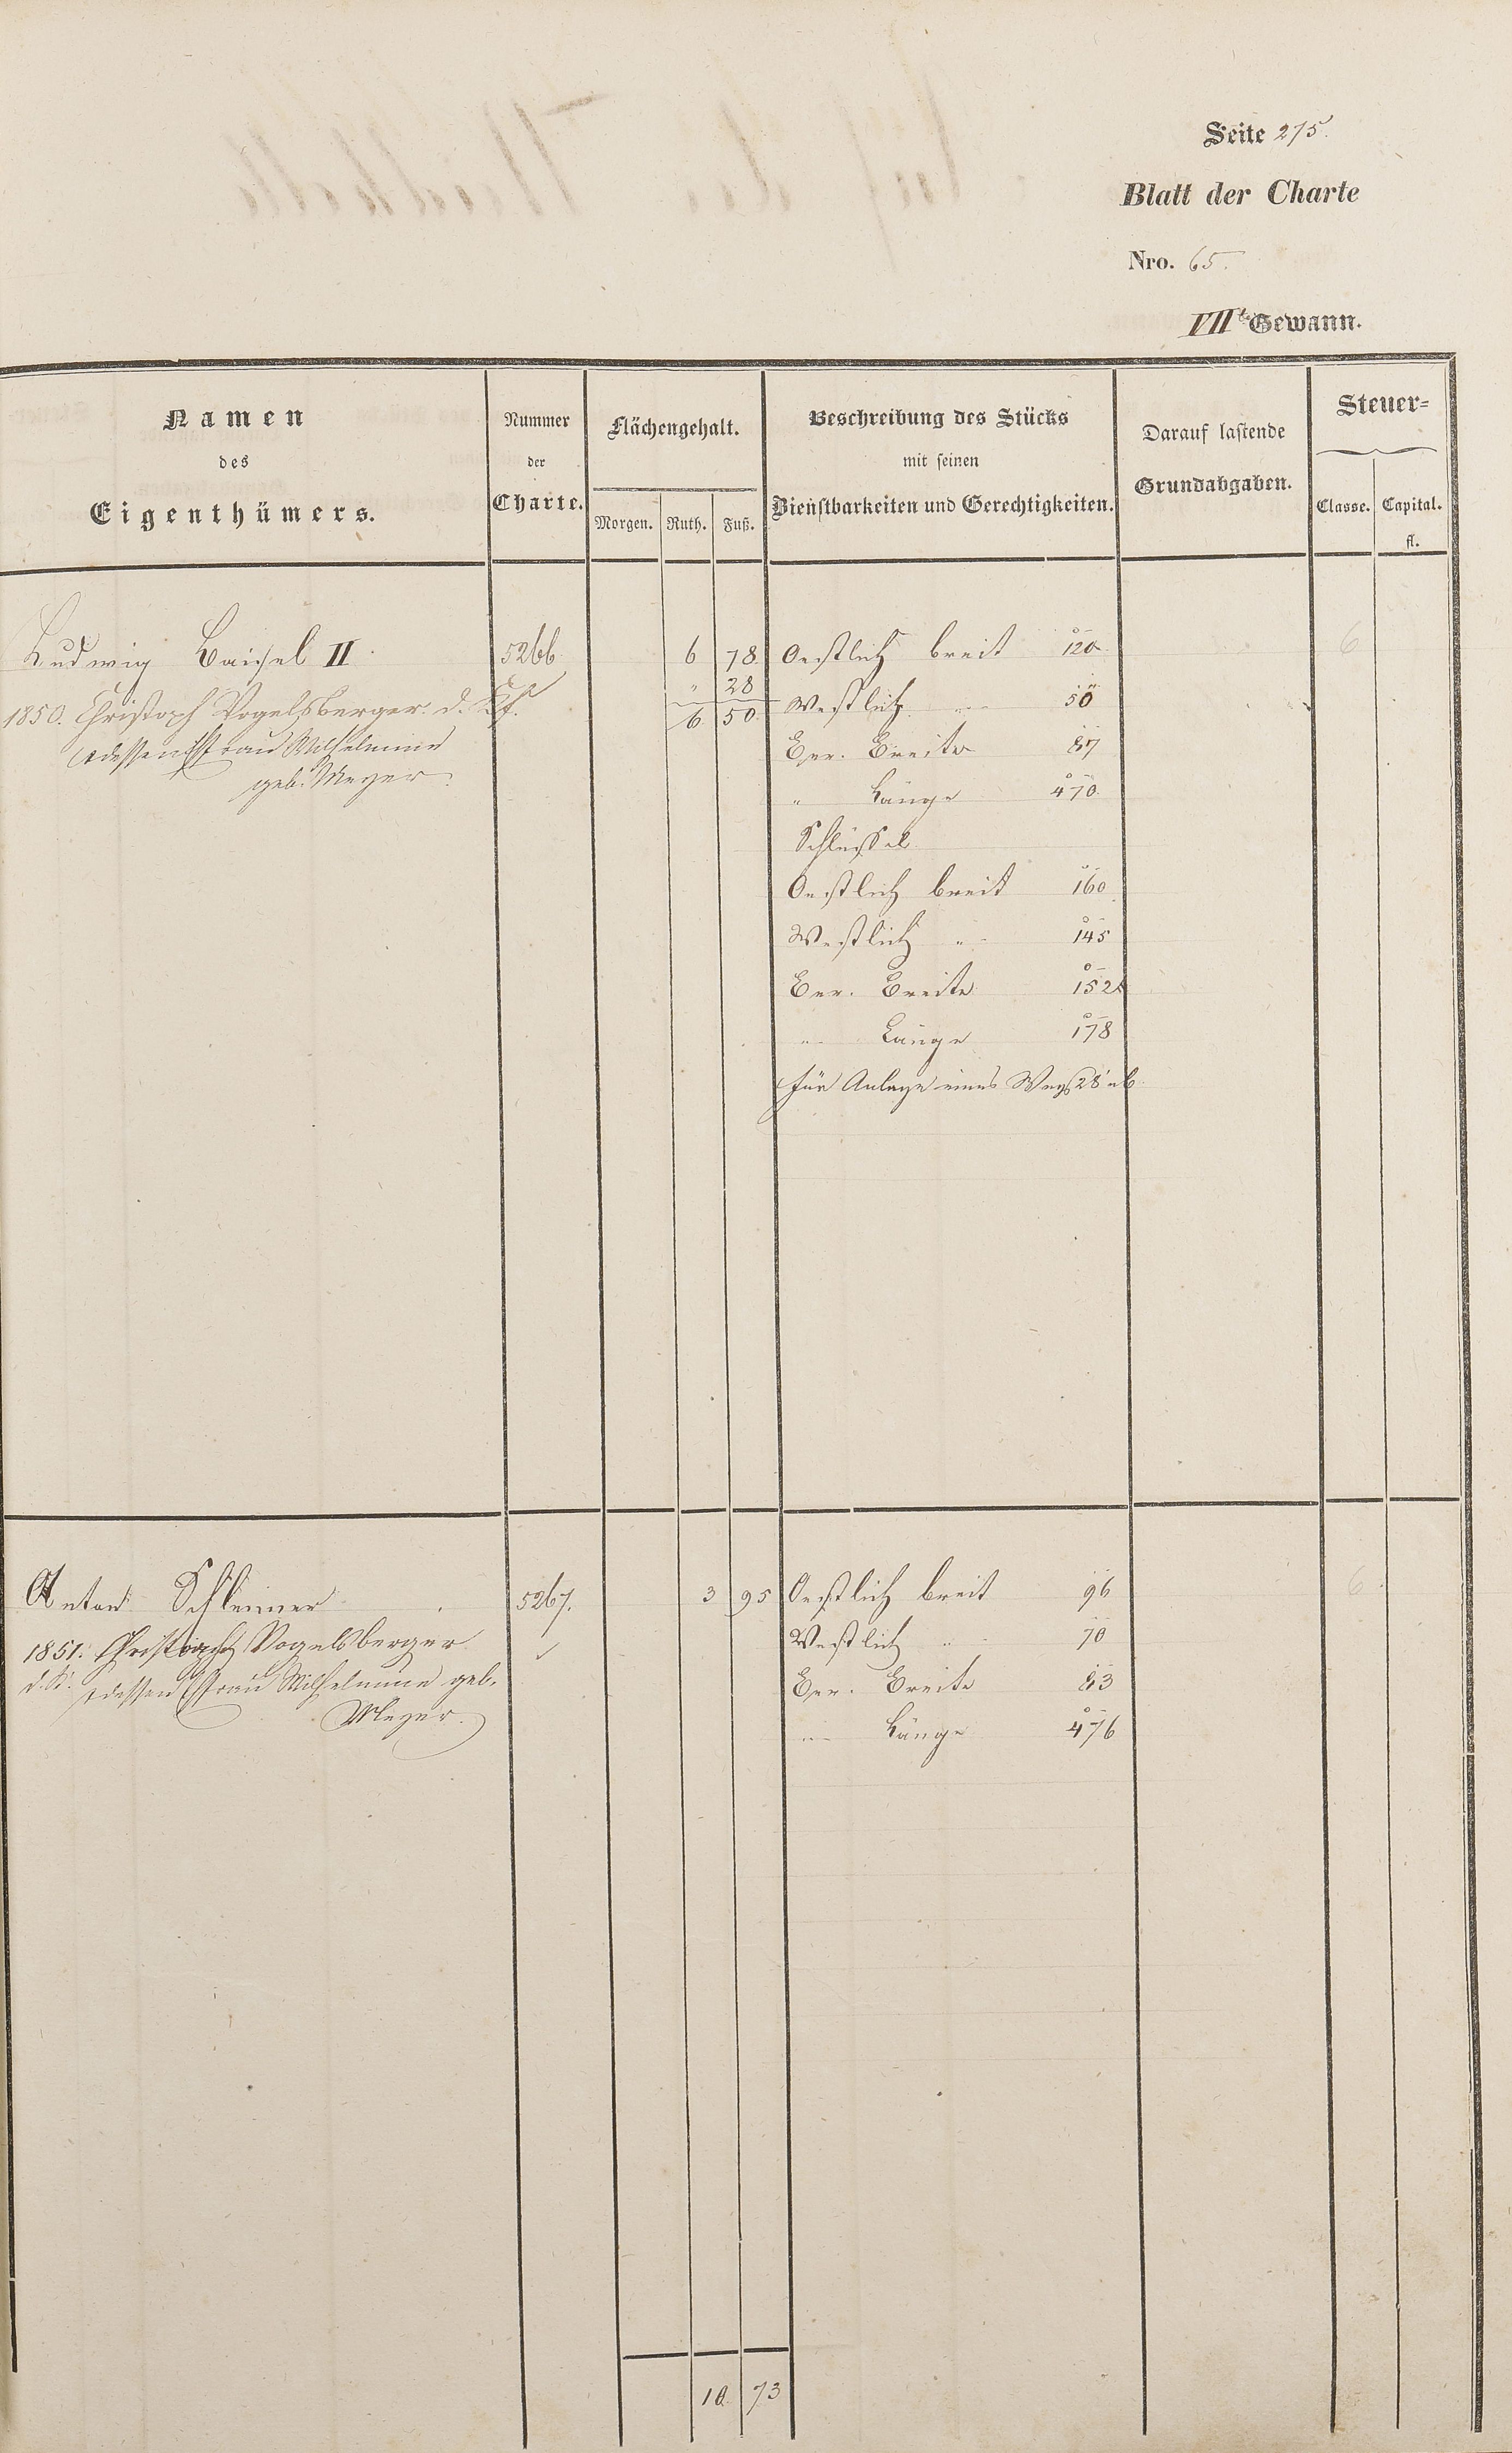 Seite 275.
Blatt der Charte
Nro. 65.
VIIte Gewann.
Namen
des
Eigenthümers.
Nummer
der
Charte.
Flächengehalt.
Morgen. Ruth. Fuß.
Beschreibung des Stücks
mit seinen
Dienstbarkeiten und Gerechtigkeiten.
Darauf lastende
Grundabgaben.
Steuer-
Classe. Capital.
fl.
Ludwig Baisel II. 5266 6 78 Oestlich breit 120 6
" 28
1850. Christoph Vogelsberger d. 6 50 Westlich " 50
u dessen Ehefrau Wilhelmine
geb. Meyer.
Ver. Breite 87
" Länge 470.
Schlüssel
Oestlich breit 160
Westlich " 145
Ver. Breite 152
" Länge 178
für Anlage eines Wegs 28' ab
Anton Schleimer 5267. 3 95 Oestlich breit 96 6.
1851. Christoph Vogelsberger Westlich " 70
d. K. u dessen Ehefrau Wilhelmine geb. Ver. Breite 83
Meyer.
" Länge 476
10 73